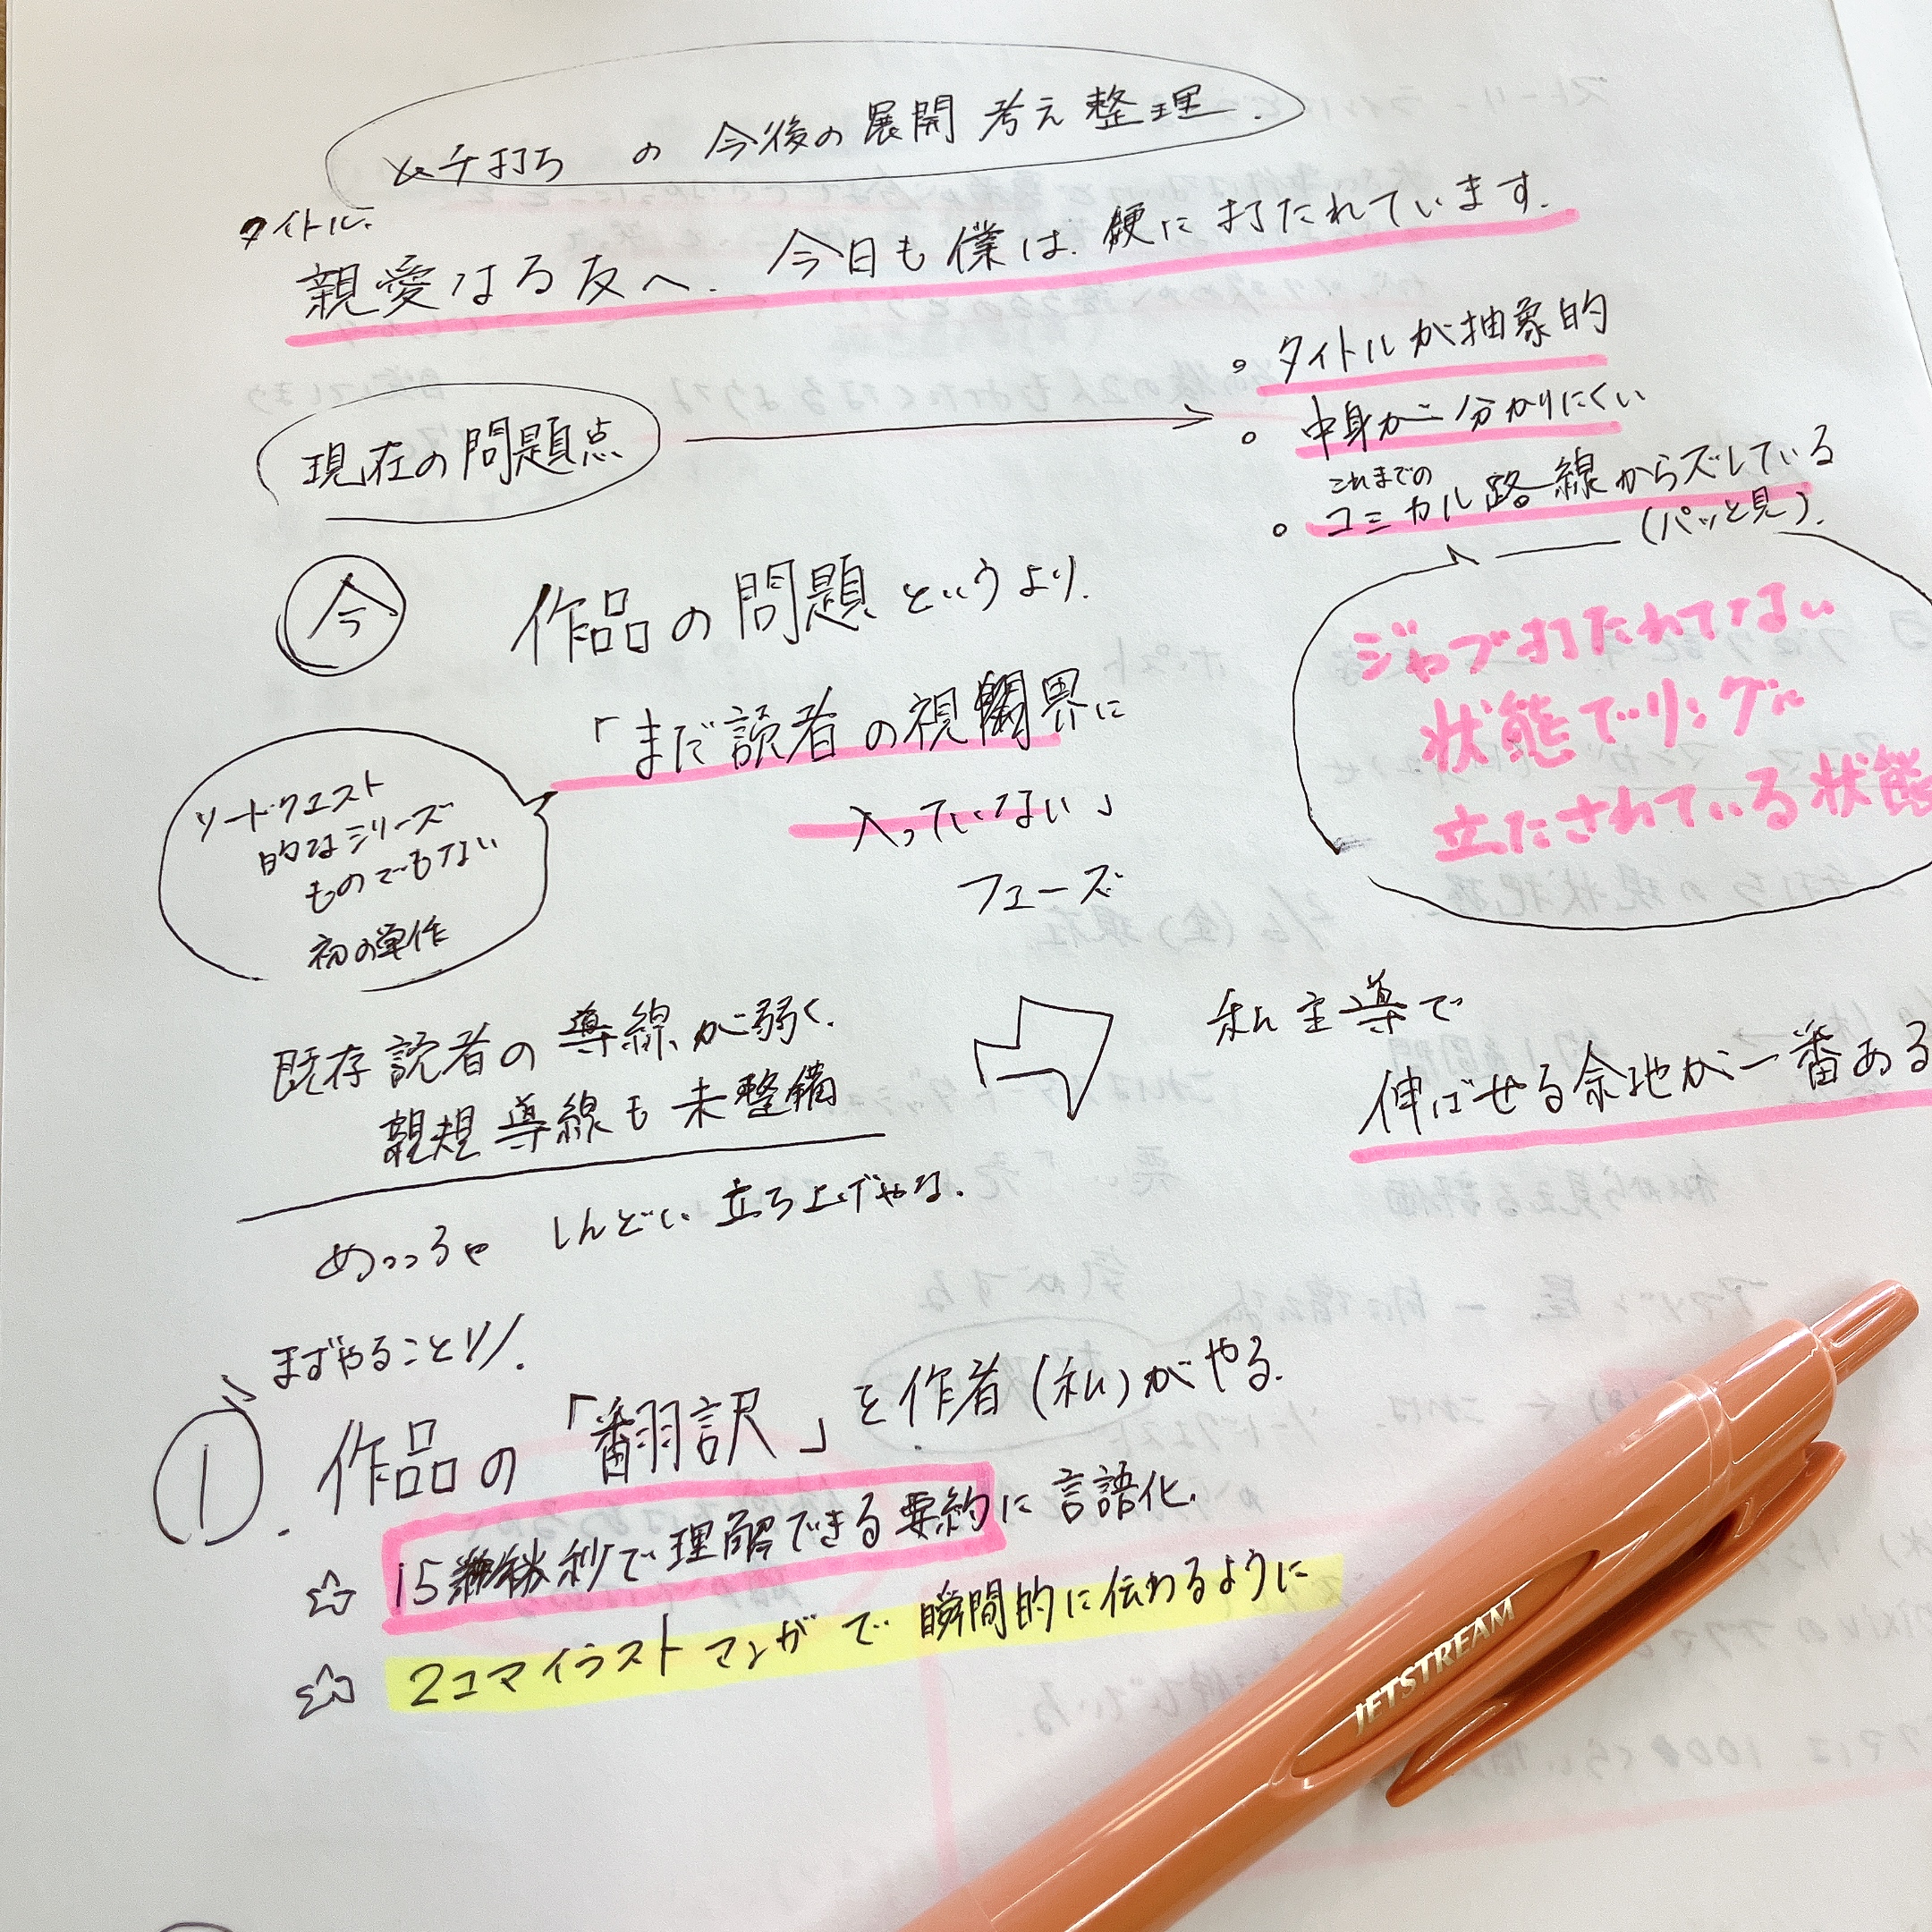 ムチ打ち の 今後の展開 考え整理.
タイトル.
親愛なる友へ. 今日も僕は. 鞭に打たれています.
現在の問題点
。タイトルが抽象的
。中身が分かりにくい
これまでの
。コミカル路線からズレている
(パッと見).
ジャブ打たれてない
状態でリングに
立たされている状態
今
作品の問題というより.
「まだ読者の視界に
入っていない」
フェーズ
ソードクエスト
的なシリーズ
ものでもない
初の単作
既存読者の導線が弱く.
新規導線も未整備
私主導で
伸ばせる余地が一番ある
めっっちゃ しんどい立ち上げやな.
まずやること!/.
① 作品の「翻訳」を作者(私)がやる.
☆ 15秒で理解できる要約に言語化.
☆ 2コマイラストマンガで瞬間的に伝わるように
JETSTREAM